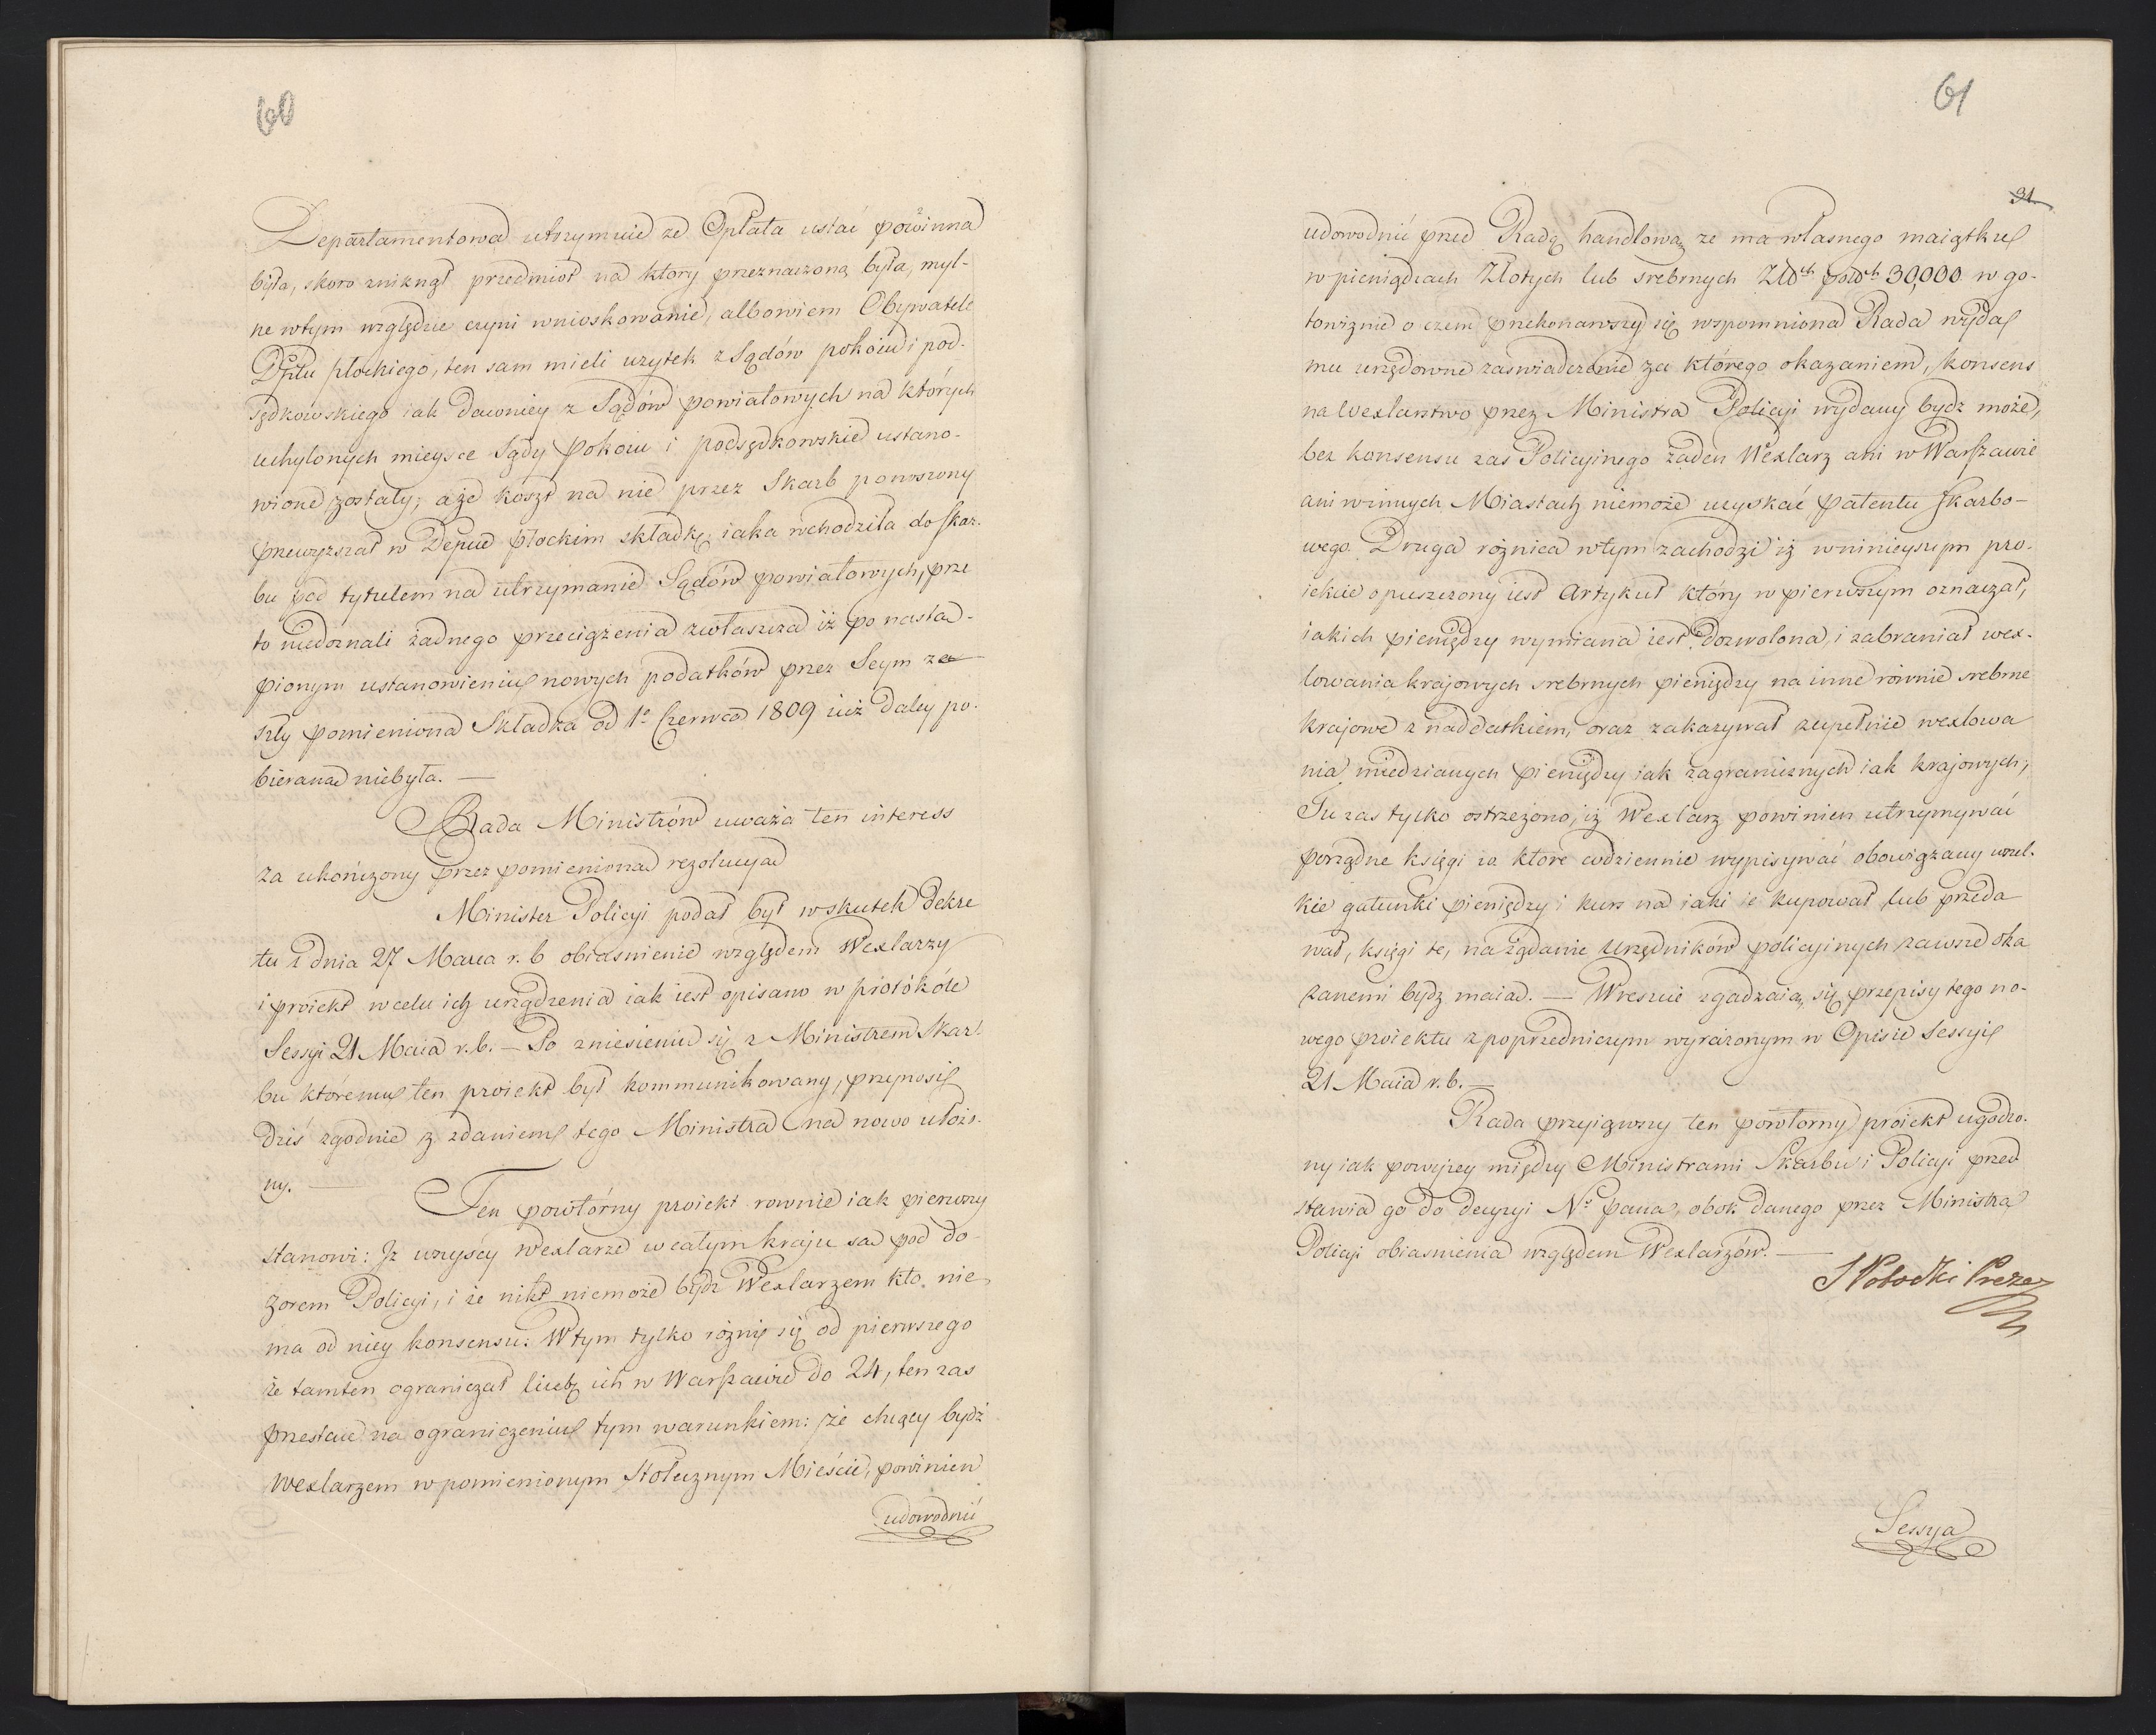 60
Departamentowa utrzymuie że Opłata ustać powinna
była, skoro zniknął przedmiot na ktory przeznaczoną była, myl-
ne wtym względzie czyni wnioskowanie, albowiem Obywatele
Dptu płockiego, ten sam mieli użytek z Sądów pokoiu i pod-
sędkowskiego iak dawniey z Sądów powiatowych na których
uchylonych mieysce Sądy Pokoiu i podsędkowskie ustano-
wione zostały; a że koszt na nie przez Skarb ponoszony
przewyższał w Depcie płockim składkę iaka wchodziła do skar-
bu pod tytułem na utrzymanie Sądów powiatowych, prze
to niedoznali żadnego przeciążenia zwłaszcza iż po nastą-
pionym ustanowieniu nowych podatków przez Seym ze
szły pomieniona Składka od 1o Czerwca 1809 iuż daley po-
bierana niebyła. —
Rada Ministrów uważa ten interess
za ukończony przez pomieniona rezolucya
Minister Policyi podał był wskutek Dekre
tu z dnia 27 Marca r. b obiasnienie względem Wexlarzy
i proiekt wcelu ich urządzenia iak iest opisano w protokóle
Sessyi 21 Maia r. b. — Po zniesieniu się z Ministrem Skar-
bu któremu ten proiekt był kommunikowany, przynosi
dziś zgodnie z zdaniem tego Ministra na nowo ułożo-
ny. —
Ten powtórny proiekt rownie iak pierwszy
stanowi: Iż wszyscy Wexlarze w całym kraju są pod do-
zorem Policyi, i że nikt niemoże bydz Wexlarzem kto nie
ma od niey konsensu: W tym tylko rożni się od pierwszego
że tamten ograniczał liczbę ich w Warszawie do 24, ten zas
przestaie na ograniczeniu tym warunkiem: że chcący bydź
Wexlarzem w pomienionym Stołecznym Mieście, powinien
udowodnić
61
31
udowodnić przed Radą handlową że ma własnego maiątku
w pieniądzach Złotych lub srebrnych Złtch polch 30,000 w go-
towiznie o czem przekonawszy się wspomniona Rada wyda
mu urzędowne zaswiadczenie za którego okazaniem, konsens
na Wexlarstwo przez Ministra Policyi wydany bydz może,
bez konsensu zas Policyinego żaden Wexlarz ani w Warszawie
ani winnych Miastach niemoże uzyskać patentu skarbo-
wego. Druga różnica wtym zachodzi iż wninieyszym pro-
iekcie opuszczony iest Artykuł który w pierwszym oznaczał,
iakich pieniędzy wymiana iest dozwolona, i zabraniał wex-
lowania krajowych srebrnych pieniędzy na inne równie srebrne
krajowe z naddatkiem, oraz zakazywał zupełnie wexlowa
nia miedzianych pieniędzy iak zagranicznych iak krajowych;
Tu zas tylko ostrzeżono, iż Wexlarz powinien utrzymywać
porządne księgi w ktore codziennie wypisywać obowiązany wszel-
kie gatunki pieniędzy i kurs na iaki ie kupował lub przeda
wał, księgi te, na żądanie Urzędników policyinych zawsze oka
zanemi bydź maią. — Wreszcie zgadzaią się przepisy tego no-
wego proiektu z poprzedniczym wyrażonym w Opisie Sessyi
21 Maia r. b. —
Rada przyiąwszy ten powtorny proiekt ugodzo-
ny iak powyżey między Ministrami Skarbu i Policyi przed
stawia go do decyzyi No Pana, obok danego przez Ministra
Policyi obiasnienia względem Wexlarzów. —
S Potocki Prezes
Sessya